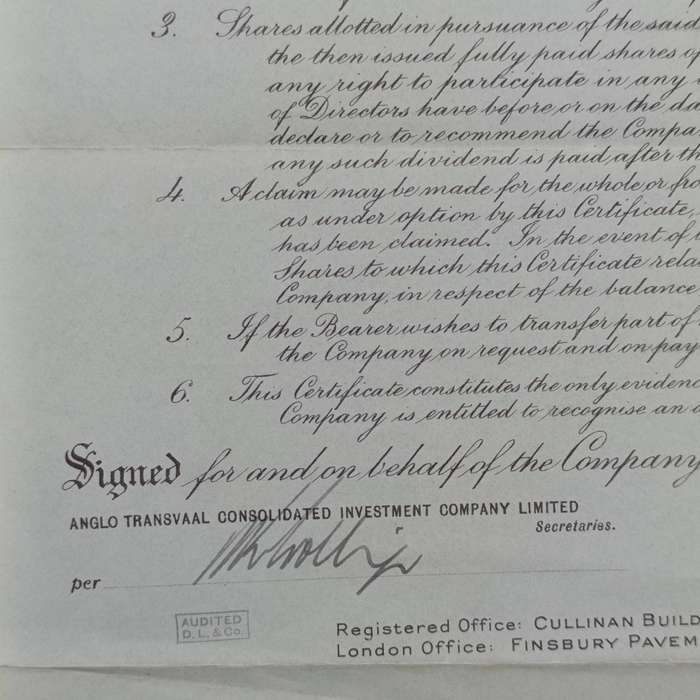 3. Shares allotted in pursuance of the said
the then issued fully paid shares of
any right to participate in any
of Directors have before or on the da
declare or to recommend the Compa
any such dividend is paid after th
4. A claim may be made for the whole or fro
as under option by this Certificate,
has been claimed. In the event of
Shares to which this Certificate rela
Company, in respect of the balance
5. If the Bearer wishes to transfer part of
the Company on request and on pay
6. This Certificate constitutes the only evidenc
Company is entitled to recognise an
Signed for and on behalf of the Company
ANGLO TRANSVAAL CONSOLIDATED INVESTMENT COMPANY LIMITED
Secretaries.
per
AUDITED
D. L. & Co.
Registered Office: CULLINAN BUILD
London Office: FINSBURY PAVEM